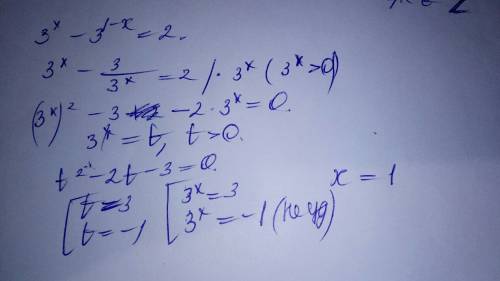 3^x - 3^{1-x} = 2.
3^x - \frac{3}{3^x} = 2 | · 3^x (3^x > 0)
(3^x)^2 - 3 - 2 · 3^x = 0.
3^x = t, t > 0.
t^2 - 2t - 3 = 0.
[t = 3 [3^x = 3 x = 1
[t = -1 [3^x = -1 (не уд)